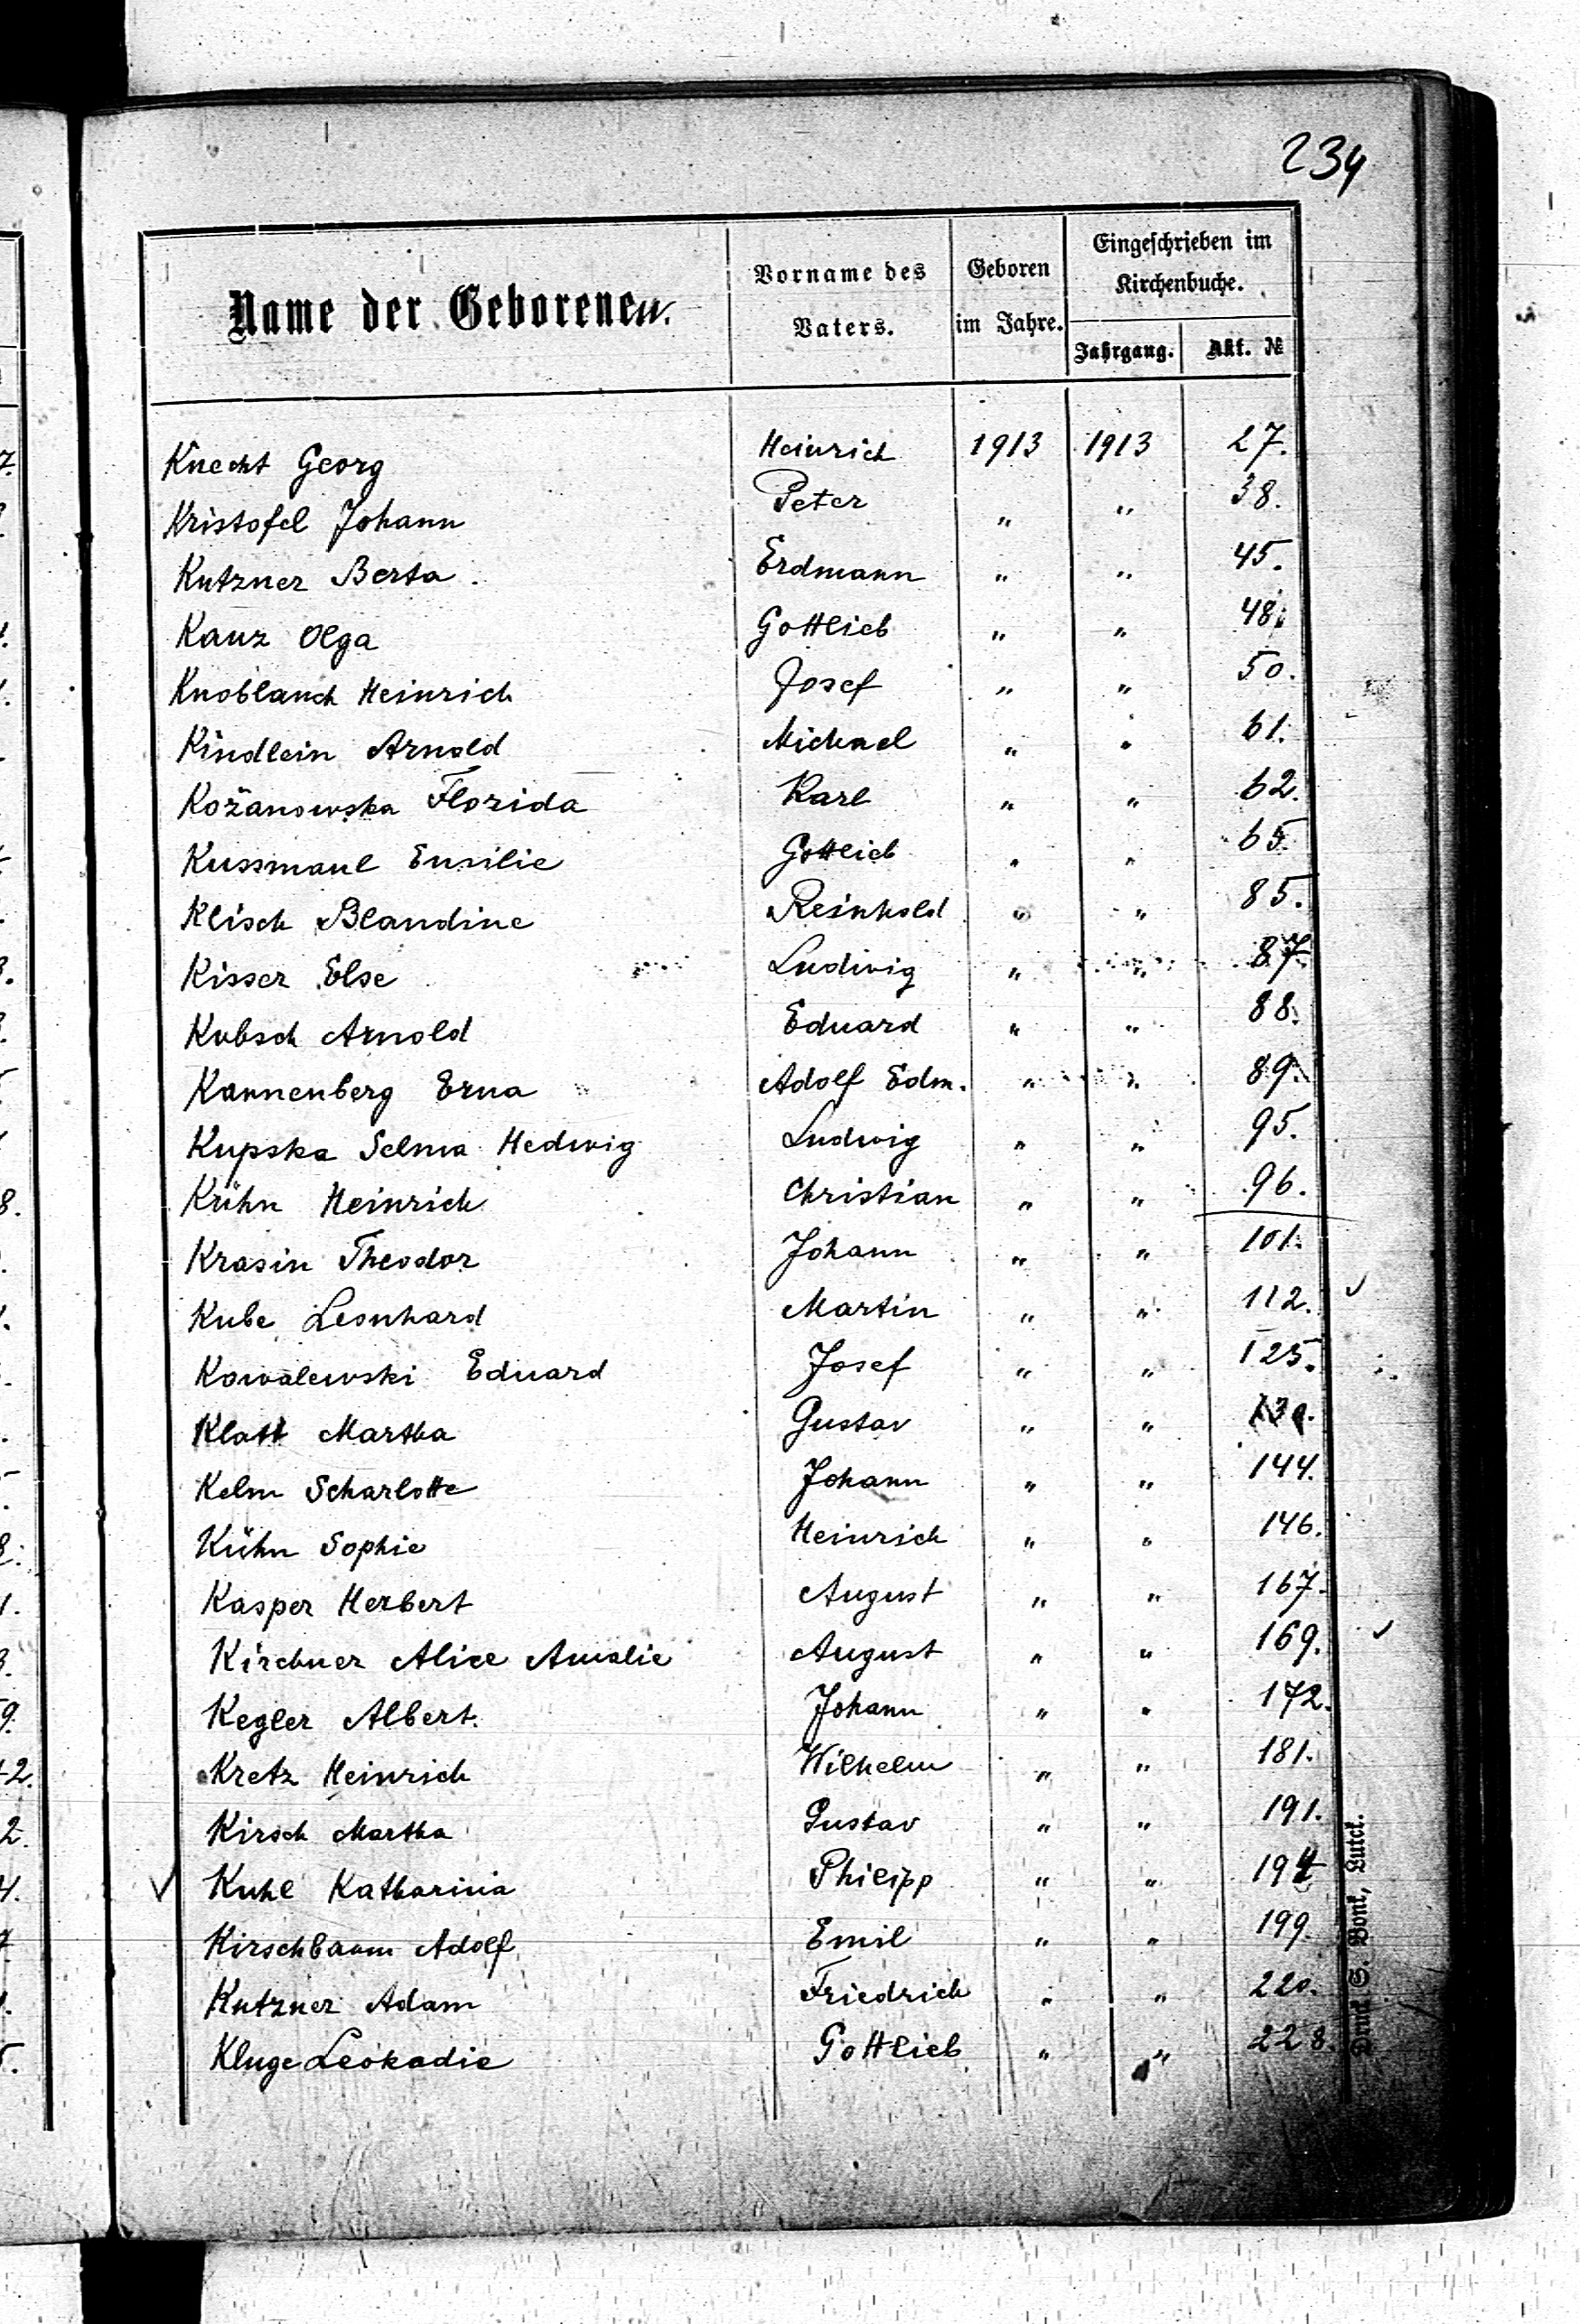 234
Name der Geborenen.
Vorname des Vaters.
Geboren im Jahre.
Eingeschrieben im Kirchenbuche.
Jahrgang. Akt. №
Knecht Georg Heinrich 1913 1913 27.
Kristofel Johann Peter " " 38.
Kutzner Berta. Erdmann " " 45.
Kanz Olga Gottlieb " " 48.
Knoblauch Heinrich Josef " " 50.
Kindlein Arnold Michael " " 61.
Kožanowska Florida Karl " " 62.
Kussmaul Emilie Gottlieb " " 65.
Klisch Blandine Reinhold " " 85.
Kisser Else Ludwig " " 87.
Kubsch Arnold Eduard " " 88.
Kannenberg Erna Adolf Edm. " " 89.
Kupska Selma Hedwig Ludwig " " 95.
Kühn Heinrich Christian " " 96.
Krasin Theodor Johann " " 101.
Kube Leonhard Martin " " 112. ✓
Kowalewski Eduard Josef " " 125.
Klatt Martha Gustav " "
Kelm Scharlotte Johann " " 144.
Kühn Sophie Heinrich " " 146.
Kasper Herbert August " " 167.
Kirchner Alice Amalie August " " 169. ✓
Kegler Albert. Johann " " 172.
Kretz Heinrich Wilhelm " " 181.
Kirsch Martha Gustav " " 191.
✓ Kuhl Katharina Philipp " " 194
Kirschbaum Adolf Emil " " 199.
Kutzner Adam Friedrich " " 220.
Kluge Leokadie Gottlieb " " 228.
Druck G. Bonk, Lutck.